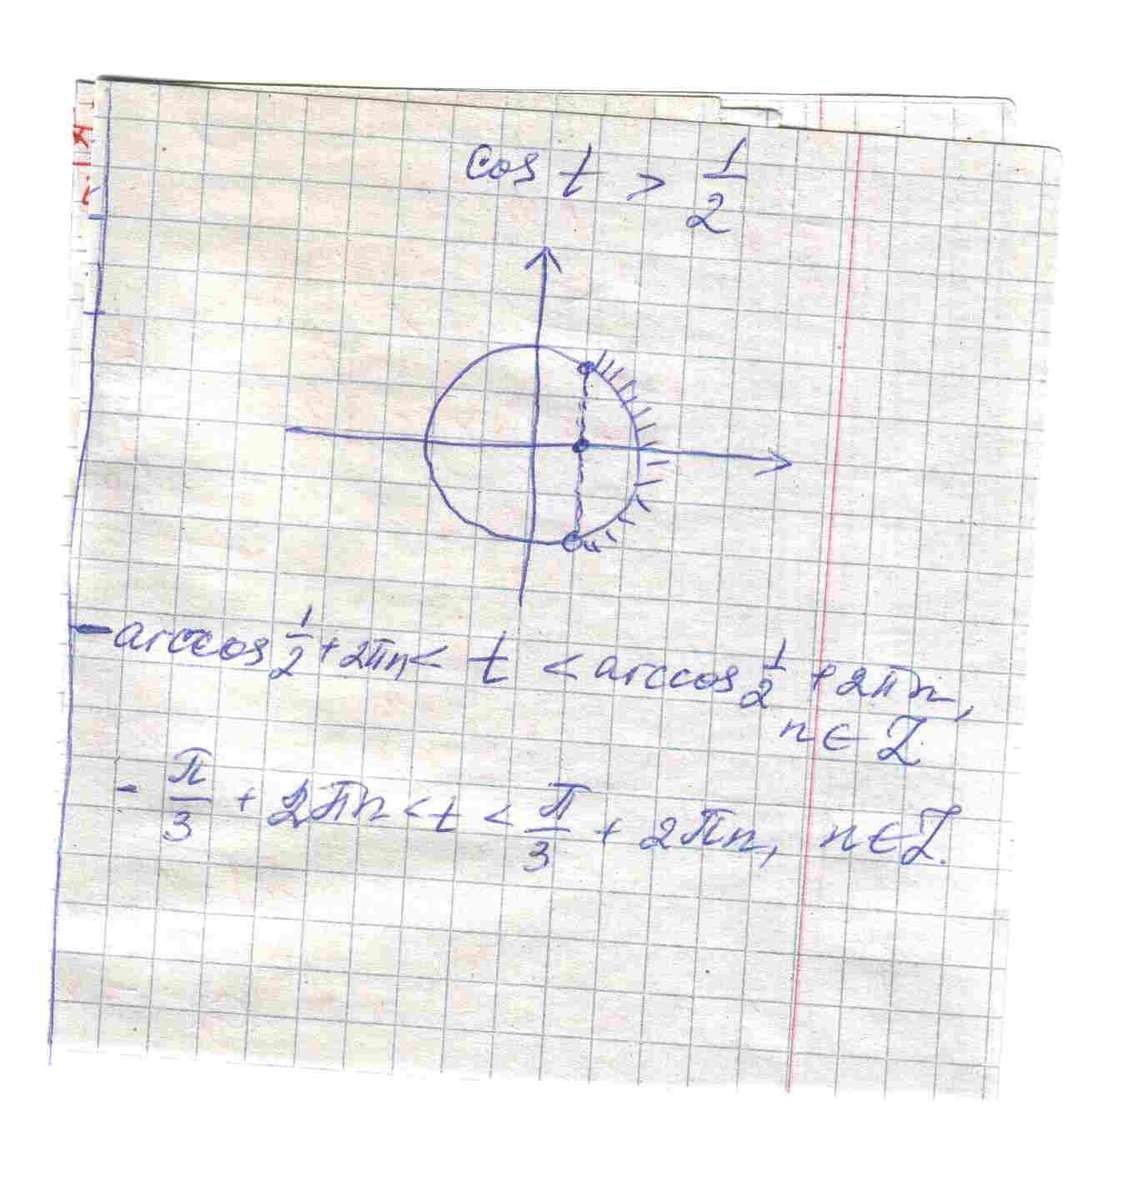 cos t > 1/2
-arccos 1/2 + 2πn < t < arccos 1/2 + 2πn,
n ∈ Z
- π/3 + 2πn < t < π/3 + 2πn, n ∈ Z.